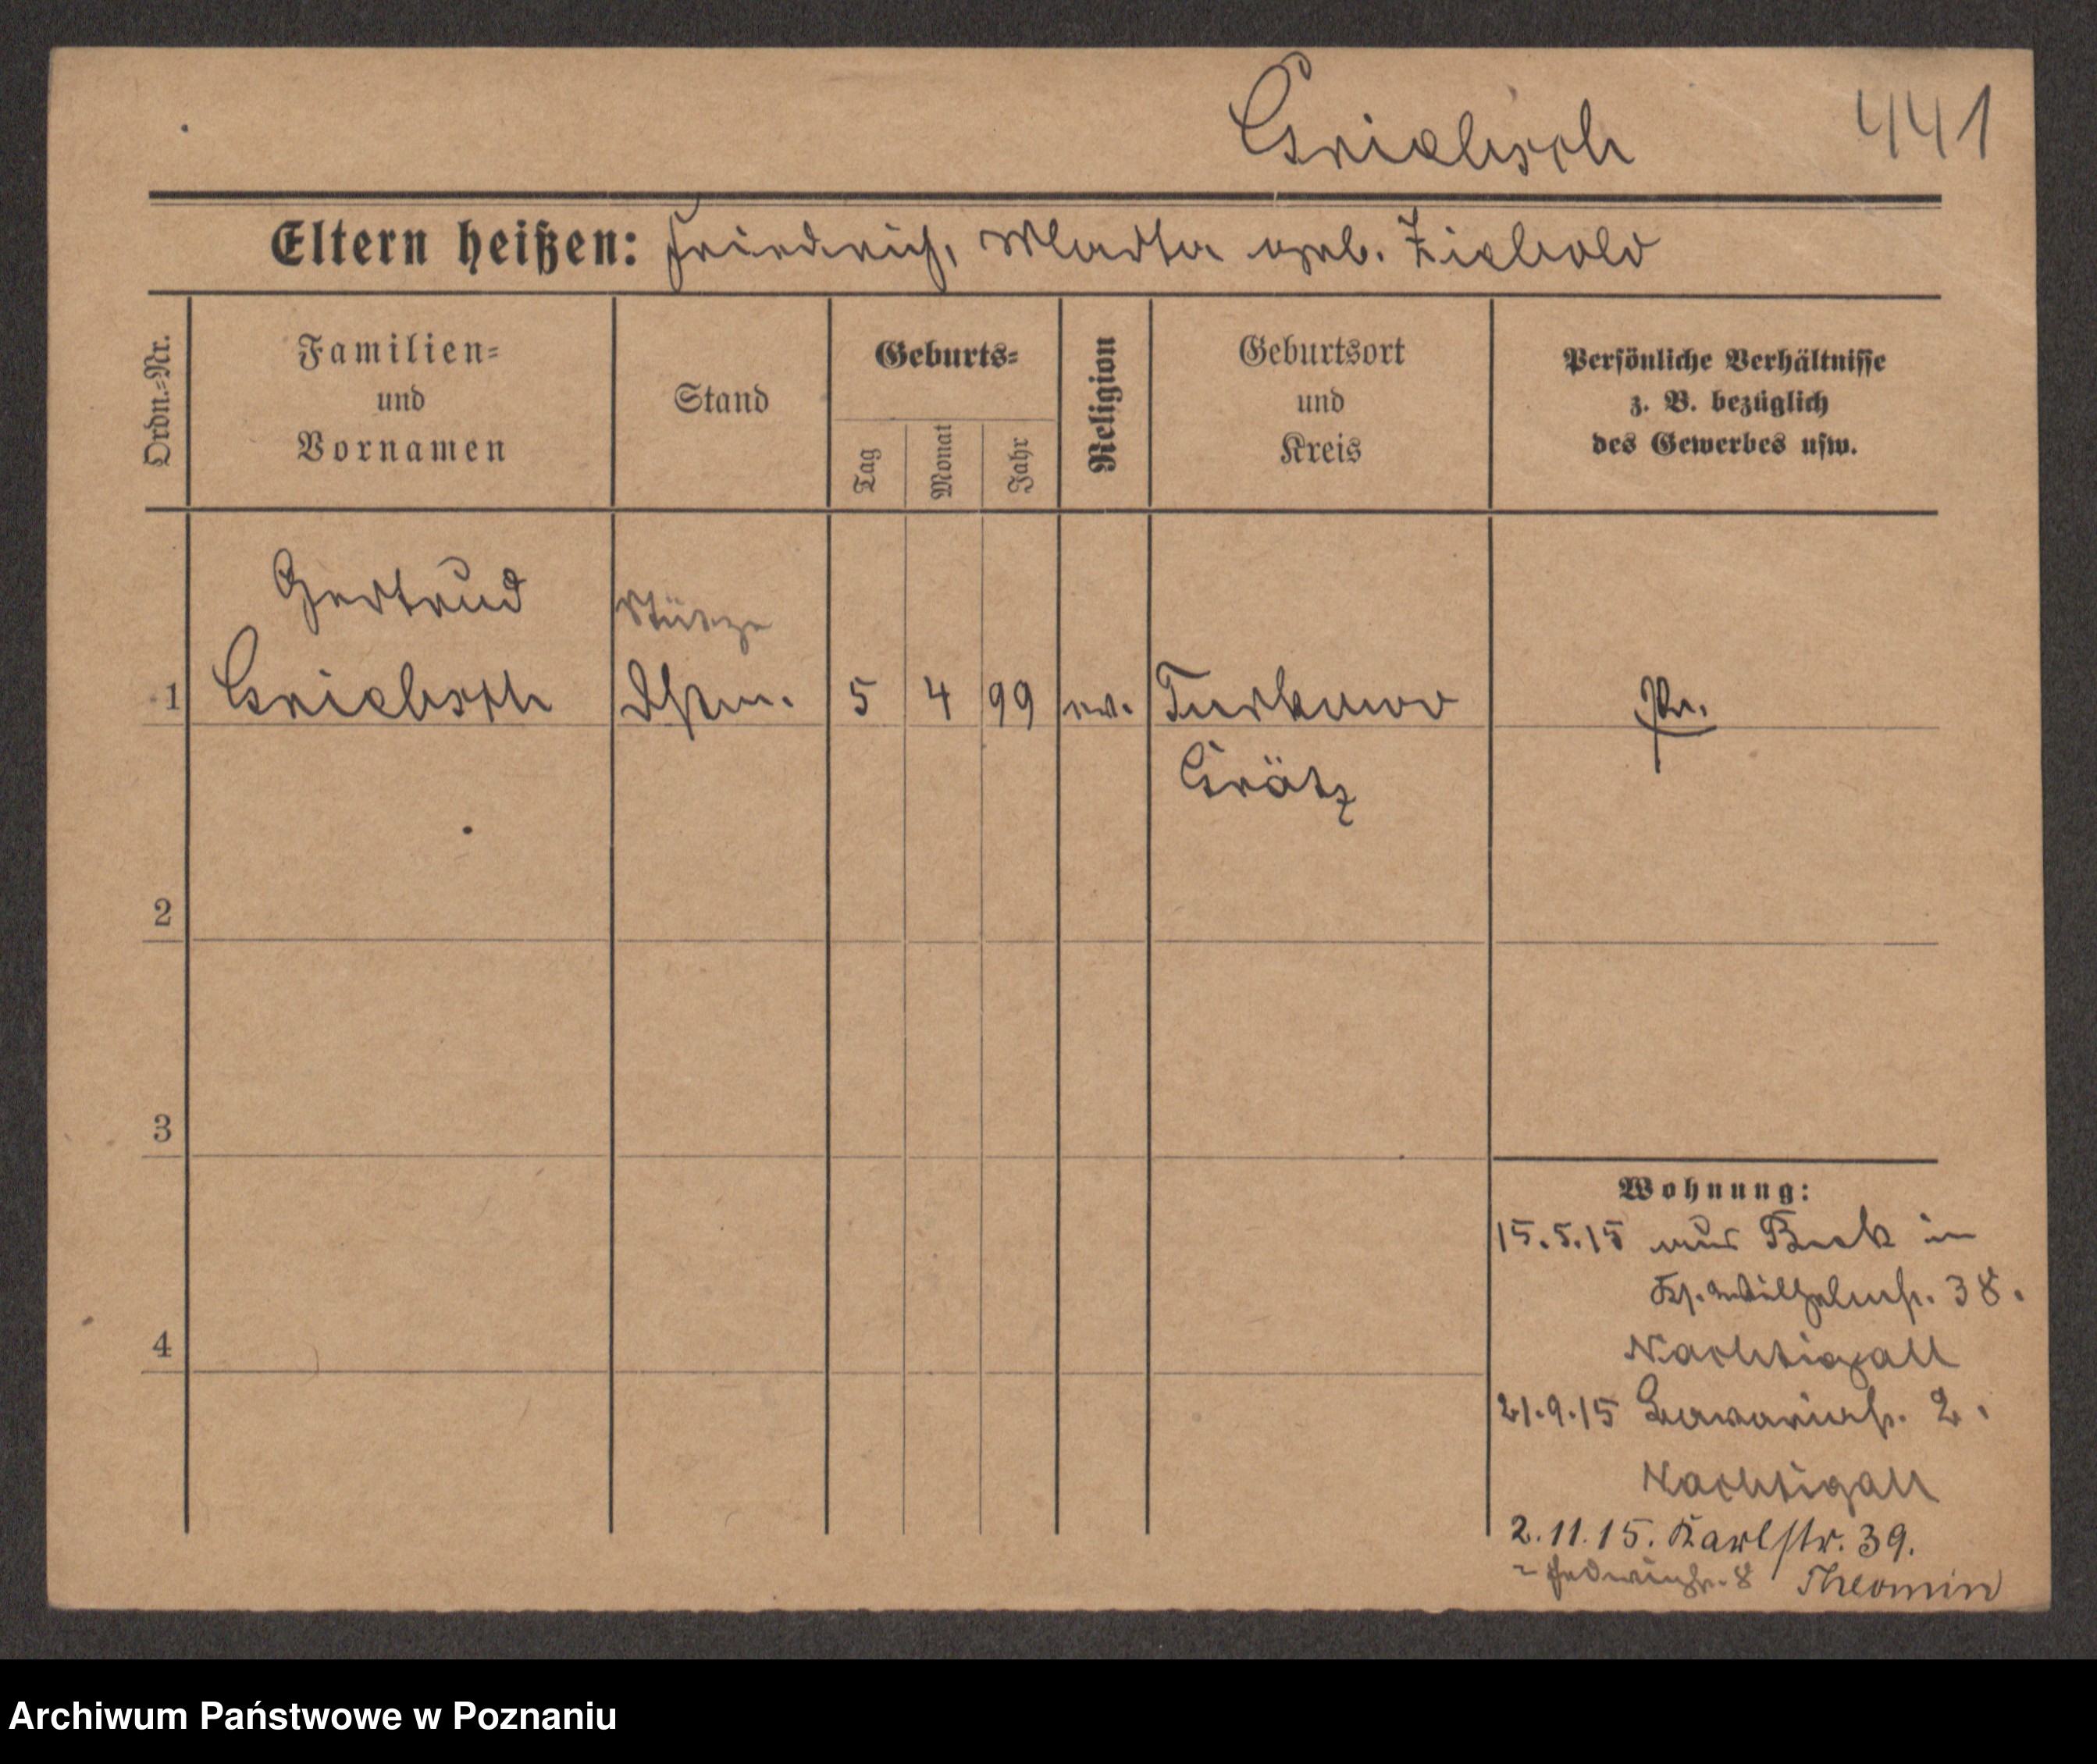 Griebsch 441
Eltern heißen: Friedrich, Martha geb. Ziebold
Ordn.-Nr.
Familien-
und
Vornamen
Stand
Geburts-
Tag
Monat
Jahr
Religion
Geburtsort
und
Kreis
Persönliche Verhältnisse
z. B. bezüglich
des Gewerbes usw.
Gertrud
Stütze
1 Griebsch Dstm. 5 4 99 ev. Turkowo Pr.
Grätz
2
3
4
Wohnung:
15.5.15 aus Buk in
Kr. Wilhelmstr. 38.
Nachtigall
21.9.15 2.
Nachtigall
2.11.15. Karlstr. 39.
Hedwigstr. 8 Theomin
Archiwum Państwowe w Poznaniu